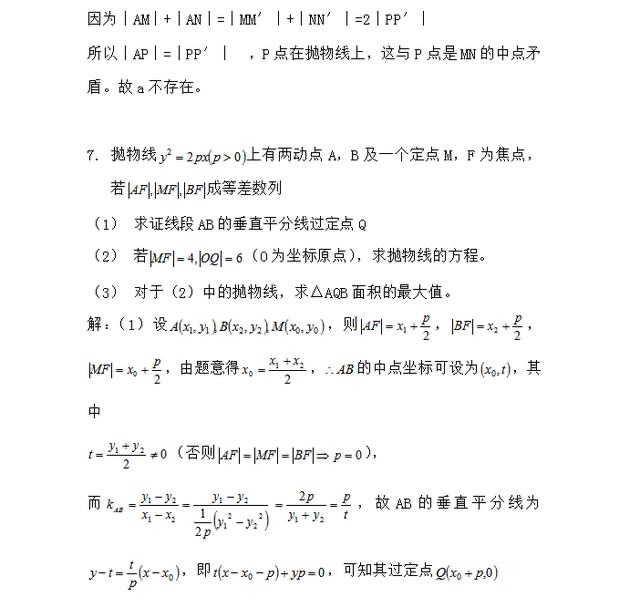 因为|AM|+|AN|=|MM′|+|NN′|=2|PP′|
所以|AP|=|PP′| ,P点在抛物线上,这与P点是MN的中点矛
盾。故a不存在。
7. 抛物线y²=2px(p>0)上有两动点A,B及一个定点M,F为焦点,
若|AF|,|MF|,|BF|成等差数列
(1) 求证线段AB的垂直平分线过定点Q
(2) 若|MF|=4,|OQ|=6(O为坐标原点),求抛物线的方程。
(3) 对于(2)中的抛物线,求△AQB面积的最大值。
解:(1)设A(x₁,y₁),B(x₂,y₂),M(x₀,y₀),则|AF|=x₁+p/2,|BF|=x₂+p/2,
|MF|=x₀+p/2,由题意得x₀=(x₁+x₂)/2,∴AB的中点坐标可设为(x₀,t),其
中
t=(y₁+y₂)/2≠0(否则|AF|=|MF|=|BF|⇒p=0),
而k_AB=(y₁-y₂)/(x₁-x₂)=(y₁-y₂)/(1/2p(y₁²-y₂²))=2p/(y₁+y₂)=p/t,故AB的垂直平分线为
y-t=t/p(x-x₀),即t(x-x₀-p)+yp=0,可知其过定点Q(x₀+p,0)